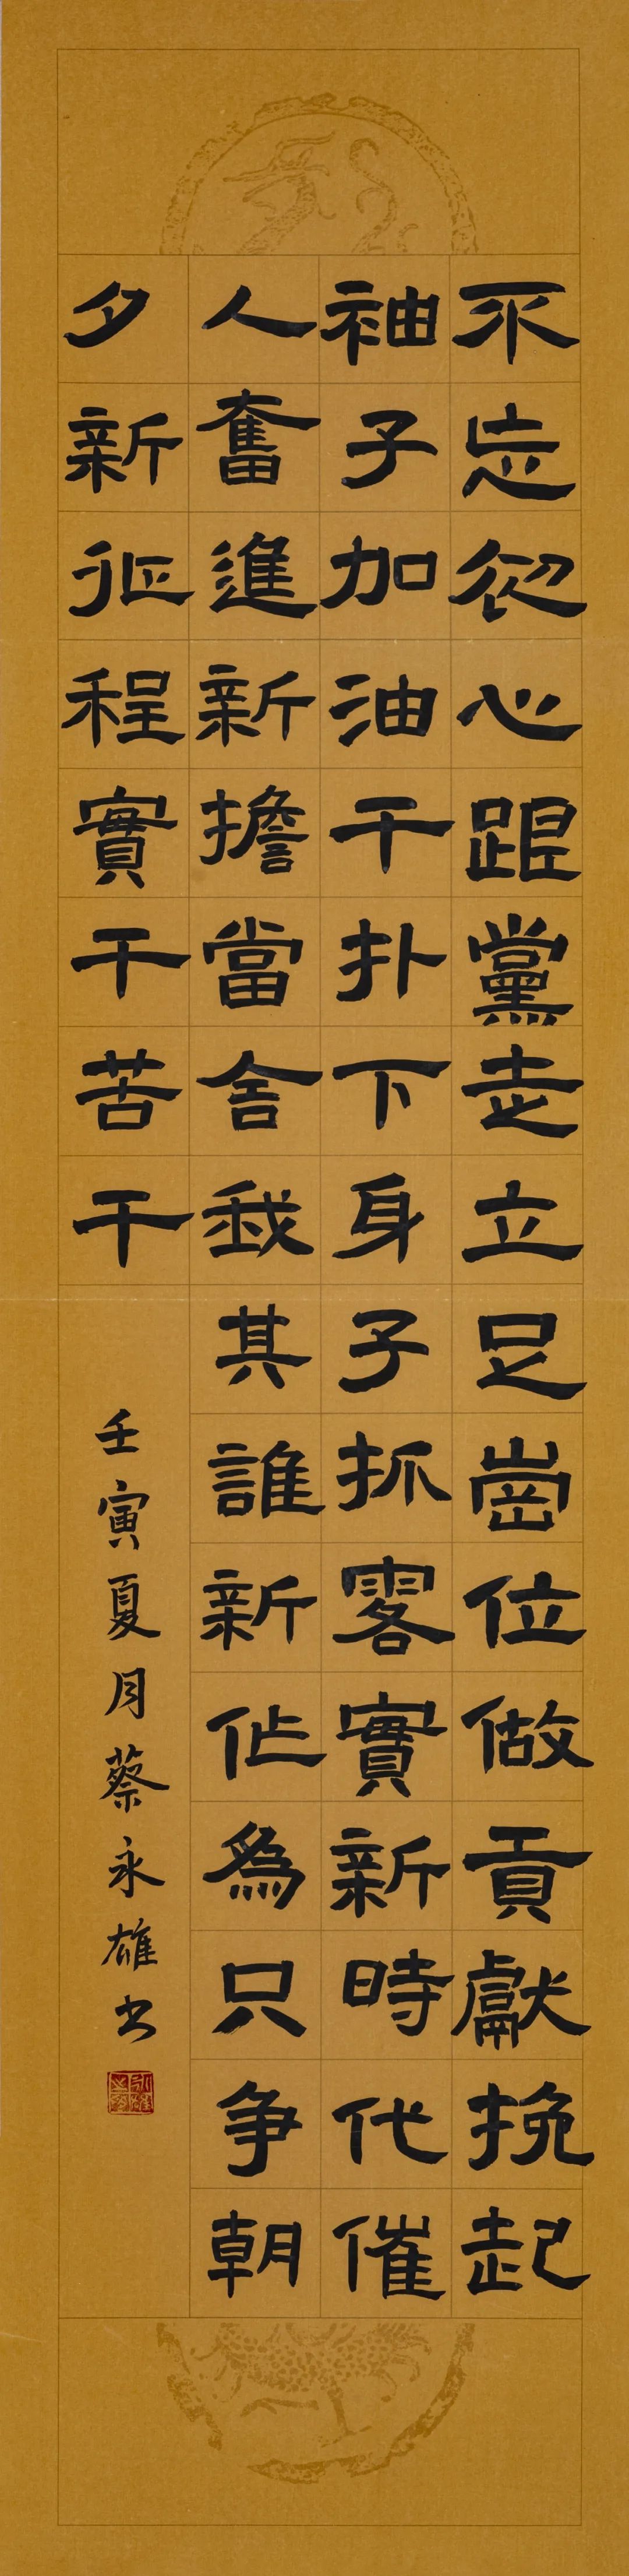 不忘初心跟黨走立足崗位做貢獻挽起
袖子加油干扑下身子抓客實新時代催
人奮進新擔當舍我其誰新作為只争朝
夕新征程實干苦干
壬寅夏月蔡永雄书